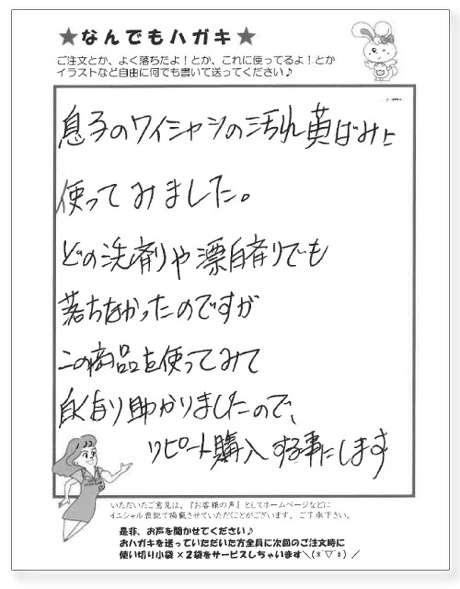 ★なんでもハガキ★
ご注文とか、よく落ちたよ！とか、これに使ってるよ！とか
イラストなど自由に何でも書いて送ってください♪
息子のワイシャツの汚れ黄ばみに
使ってみました。
どの洗剤や漂白剤でも
落ちなかったのですが
この商品を使ってみて
白くなり助かりましたので、
リピート購入する事にします
いただいたご意見は、『お客様の声』としてホームページなどに
イニシャル表記で掲載させていただくことがございます。ご了承下さい。
是非、お声を聞かせてください♪
おハガキを送っていただいた方全員に次回のご注文時に
使い切り小袋×2袋をサービスしちゃいます＼(*´▽`*)／